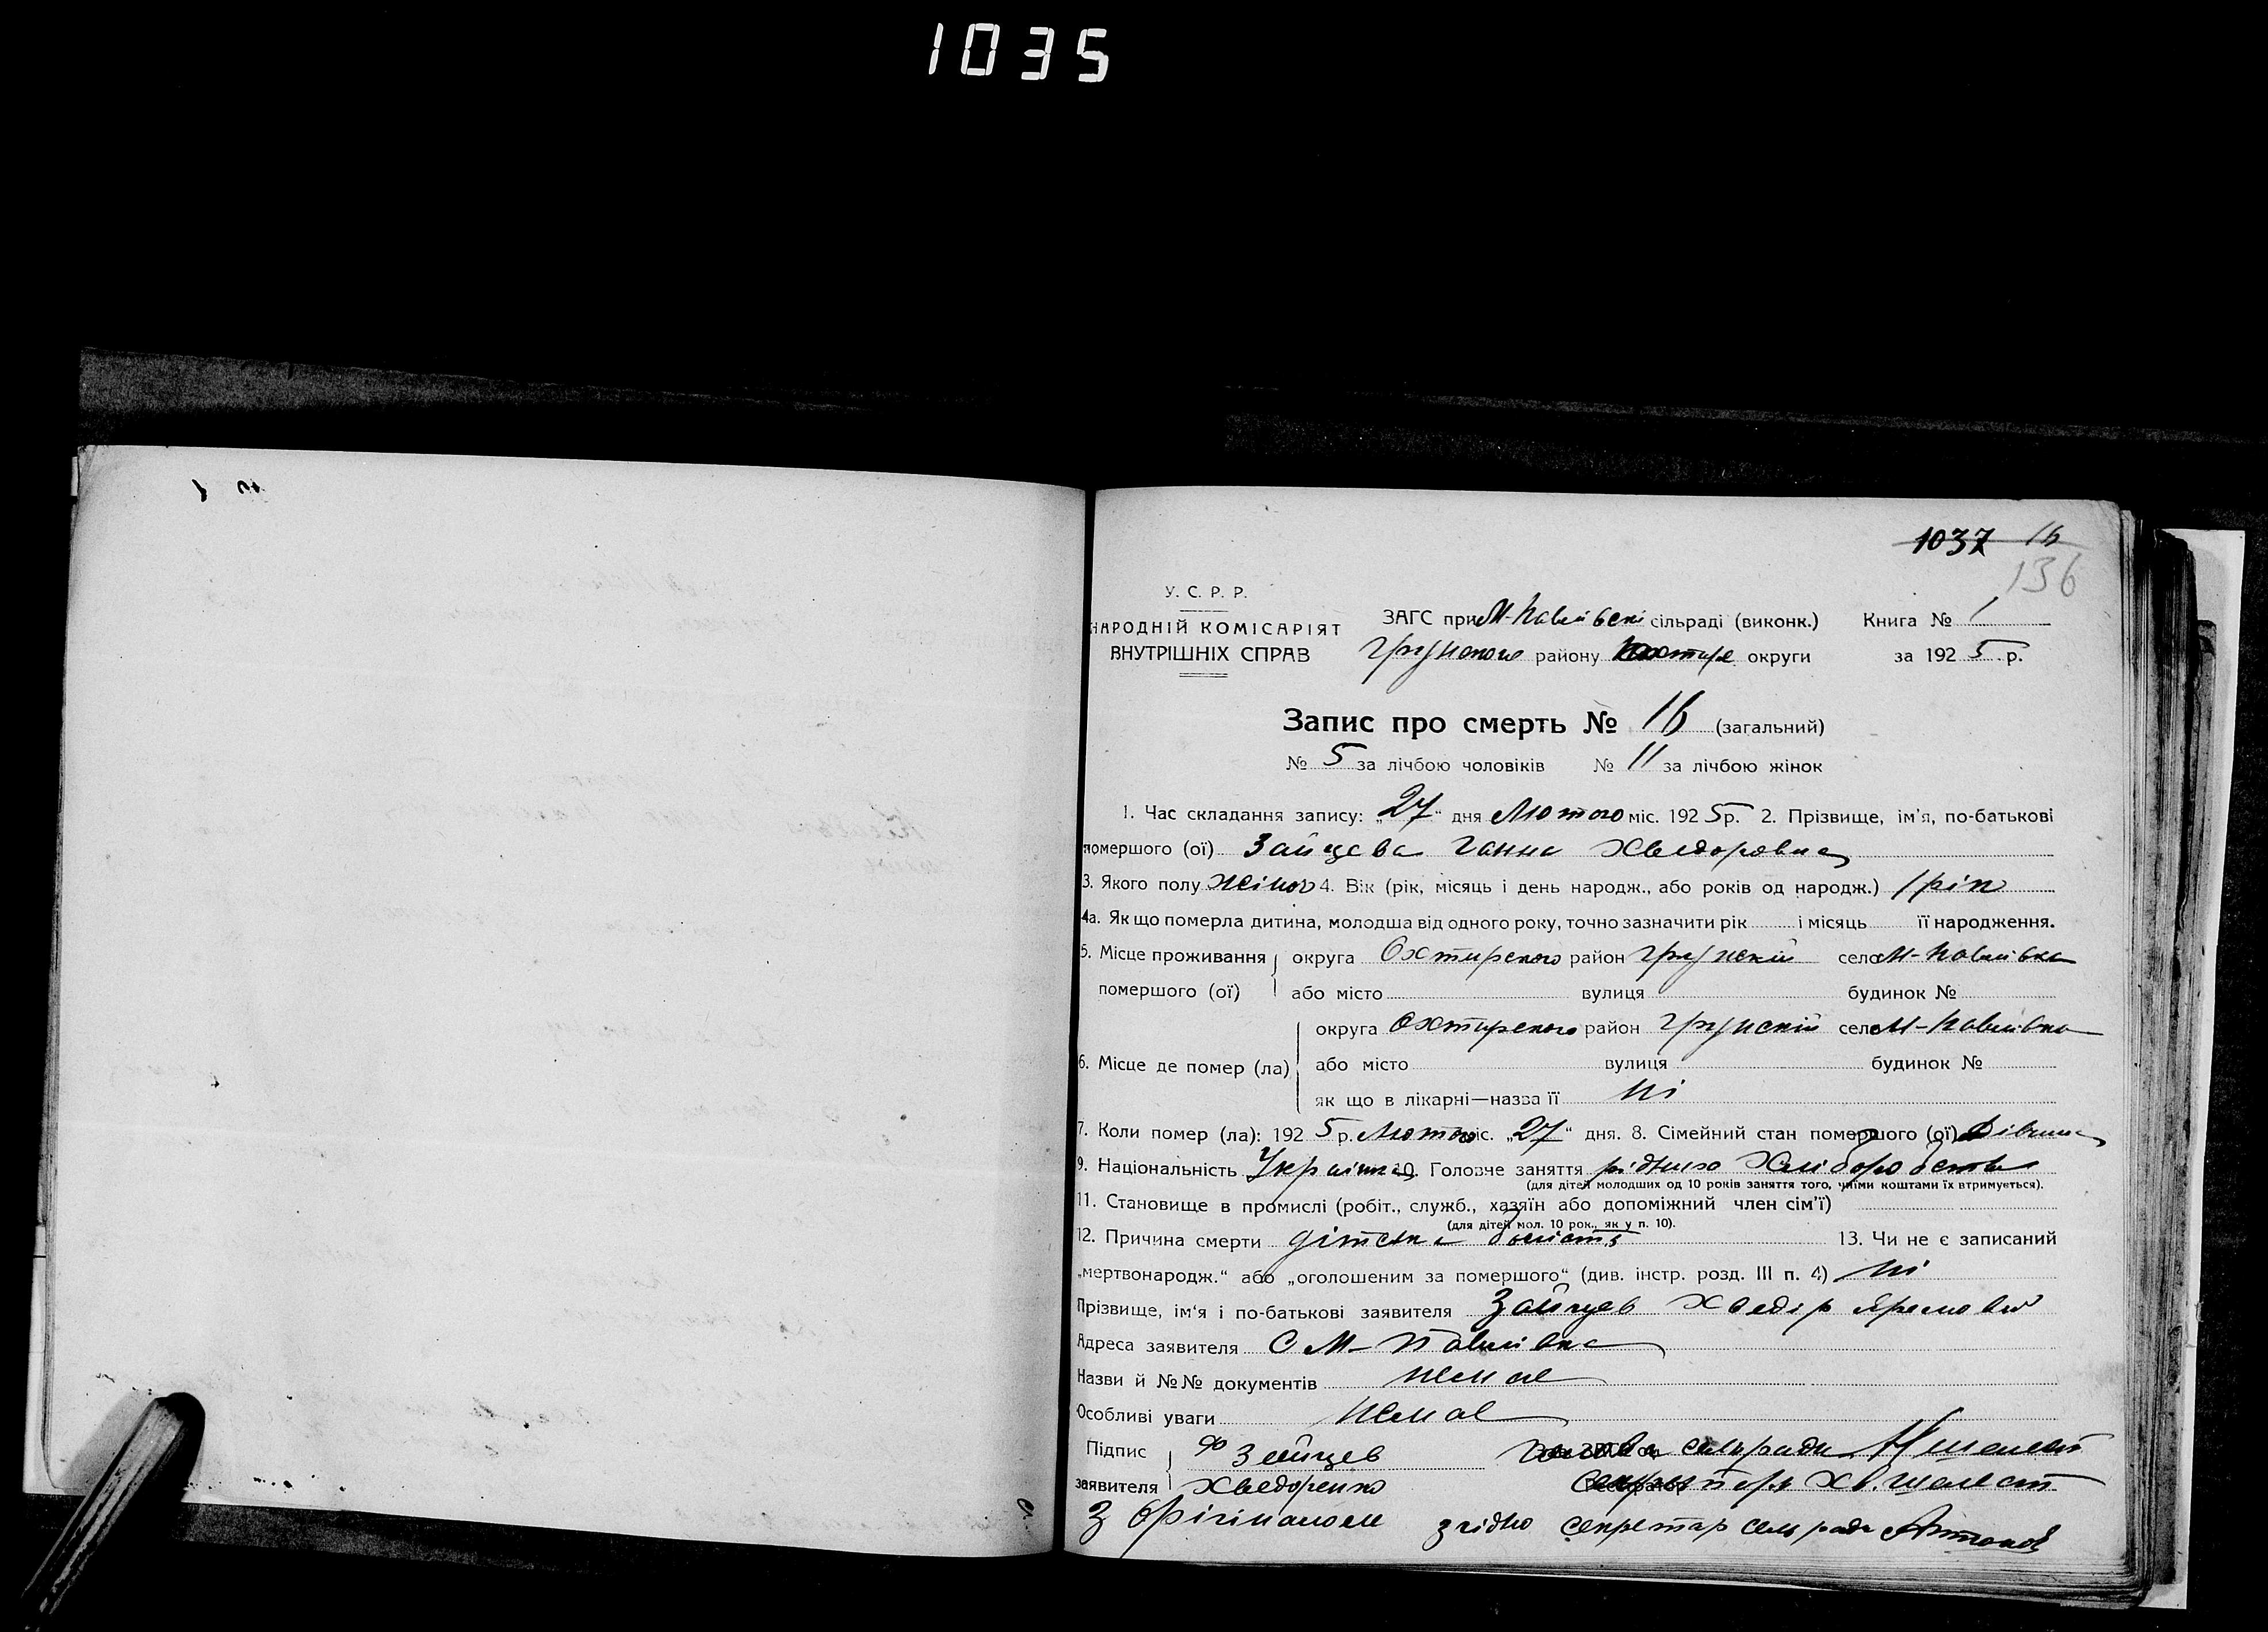 1035
1037 16
136
У. С. Р. Р.
НАРОДНІЙ КОМІСАРІЯТ
ВНУТРІШНІХ СПРАВ
ЗАГС при М-Павлівскі сільраді (виконк.) Книга № 1
Грунского району округи за 1925 р.
Запис про смерть № 16 (загальний)
№ 5 за лічбою чоловіків № 11 за лічбою жінок
1. Час складання запису: „27“ дня Лютого міс. 1925 р. 2. Прізвище, ім'я, по-батькові
помершого (ої) Зайцева Ганна Хведоровна
3. Якого полу жіноч 4. Вік (рік, місяць і день народж., або років од народж.) 1 рік
4а. Як що померла дитина, молодша від одного року, точно зазначити рік і місяць її народження.
5. Місце проживання округа Охтирского район Грунский село М-Павлівка
помершого (ої) або місто вулиця будинок №
округа Охтирского район Грунский село М-Павлівка
6. Місце де помер (ла) або місто вулиця будинок №
як що в лікарні—назва її Ні
7. Коли помер (ла): 1925 р. Лютого міс. „27“ дня. 8. Сімейний стан помершого (ої) Дівчина
9. Національність Україн 10. Головче заняття рідника Хліборобство
(для дітей молодших од 10 років заняття того, чиїми коштами їх втримується).
11. Становище в промислі (робіт., служб., хазяїн або допоміжний член сім'ї)
(для дітей мол. 10 рок., як у п. 10).
12. Причина смерти дітска болість 13. Чи не є записаний
„мертвонародж.“ або „оголошеним за помершого“ (див. інстр. розд. III п. 4) Ні
Прізвище, ім'я і по-батькові заявителя Зайцев Хведір Яремович
Адреса заявителя С М-Павлівка
Назви й №№ документів немає
Особливі уваги Немає
Підпис Зайцев Голова сельради Шелест
заявителя Хведоренко Секретарь Хв. Шелест
З Орігіналом згідно секретар сельради Антонов